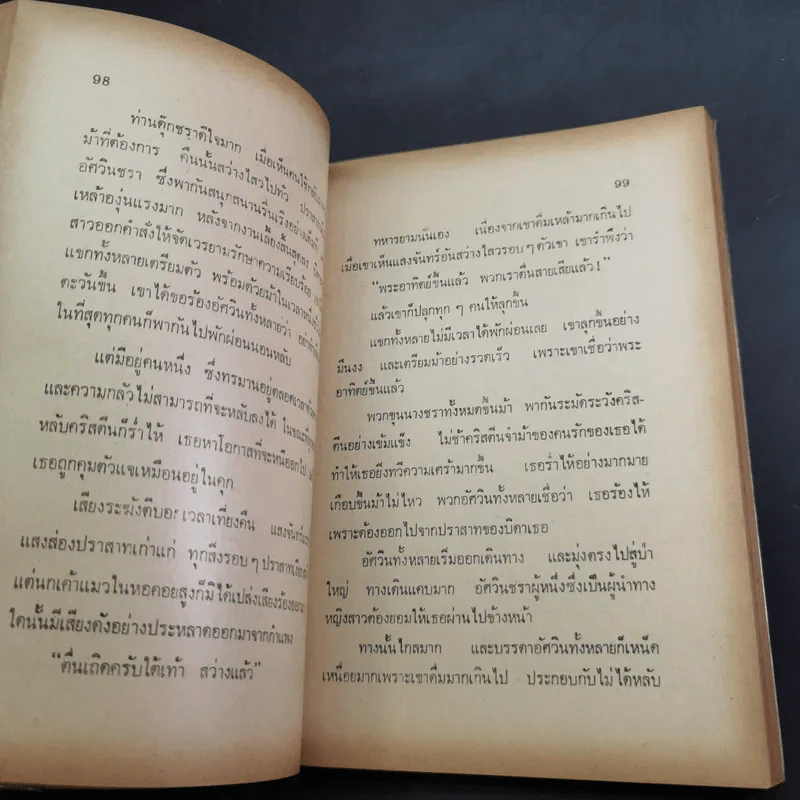 98
ท่านดุ๊กชราดีใจมาก เมื่อเห็นคนใช้
ม้าที่ต้องการ คืนนั้นสว่างไสวไปทั่ว
อัศวินชรา ซึ่งพากันสนุกสนานรื่นเริงอย่างเต็มที่
เหล้าองุ่นแรงมาก หลังจากงานเลี้ยงสิ้นสุดลง
สาวออกคำสั่งให้จัดเวรยามรักษาความเรียบร้อย
แขกทั้งหลายเตรียมตัว พร้อมด้วยม้าในเวลาหนึ่งชั่ว
ตะวันขึ้น เขาได้ขอร้องอัศวินทั้งหลายว่า
ในที่สุดทุกคนก็พากันไปพักผ่อนนอนหลับ
แต่มีอยู่คนหนึ่ง ซึ่งทรมานอยู่ตลอดเวลา
และความกลัวไม่สามารถที่จะหลับลงได้ ในขณะที่ทุก
หลับคริสตีนก็ร่ำไห้ เธอหาโอกาสที่จะหนีออกไป
เธอถูกคุมตัวแจเหมือนอยู่ในคุก
เสียงระฆังตีบอกเวลาเที่ยงคืน แสงจันทร์
แสงส่องปราสาทเก่าแก่ ทุกสิ่งรอบ ๆ ปราสาทเงียบ
แต่นกเค้าแมวในหอคอยสูงก็มิได้เปล่งเสียงร้องออกมา
ใดนั้นมีเสียงดังอย่างประหลาดออกมาจากกำแพง
“ตื่นเถิดครับใต้เท้า สว่างแล้ว”
99
ทหารยามนั่นเอง เนื่องจากเขาดื่มเหล้ามากเกินไป
เมื่อเขาเห็นแสงจันทร์อันสว่างไสวรอบ ๆ ตัวเขา เขารำพึงว่า
“พระอาทิตย์ขึ้นแล้ว พวกเราตื่นสายเสียแล้ว !”
แล้วเขาก็ปลุกทุก ๆ คนให้ลุกขึ้น
แขกทั้งหลายไม่มีเวลาได้พักผ่อนเลย เขาลุกขึ้นอย่าง
มึนงง และเตรียมม้าอย่างรวดเร็ว เพราะเขาเชื่อว่าพระ
อาทิตย์ขึ้นแล้ว
พวกขุนนางชราทั้งหมดขึ้นม้า พากันระมัดระวังคริส-
ตีนอย่างเข้มแข็ง ไม่ช้าคริสตีนจำม้าของคนรักของเธอได้
ทำให้เธอยิ่งทวีความเศร้ามากขึ้น เธอร่ำไห้อย่างมากมาย
เกือบขึ้นม้าไม่ไหว พวกอัศวินทั้งหลายเชื่อว่า เธอร้องไห้
เพราะต้องออกไปจากปราสาทของบิดาเธอ
อัศวินทั้งหลายเริ่มออกเดินทาง และมุ่งตรงไปสู่ป่า
ใหญ่ ทางเดินแคบมาก อัศวินชราผู้หนึ่งซึ่งเป็นผู้นำทาง
หญิงสาวต้องยอมให้เธอผ่านไปข้างหน้า
ทางนั้นไกลมาก และบรรดาอัศวินทั้งหลายก็เหน็ด
เหนื่อยมากเพราะเขาดื่มมากเกินไป ประกอบกับไม่ได้หลับ